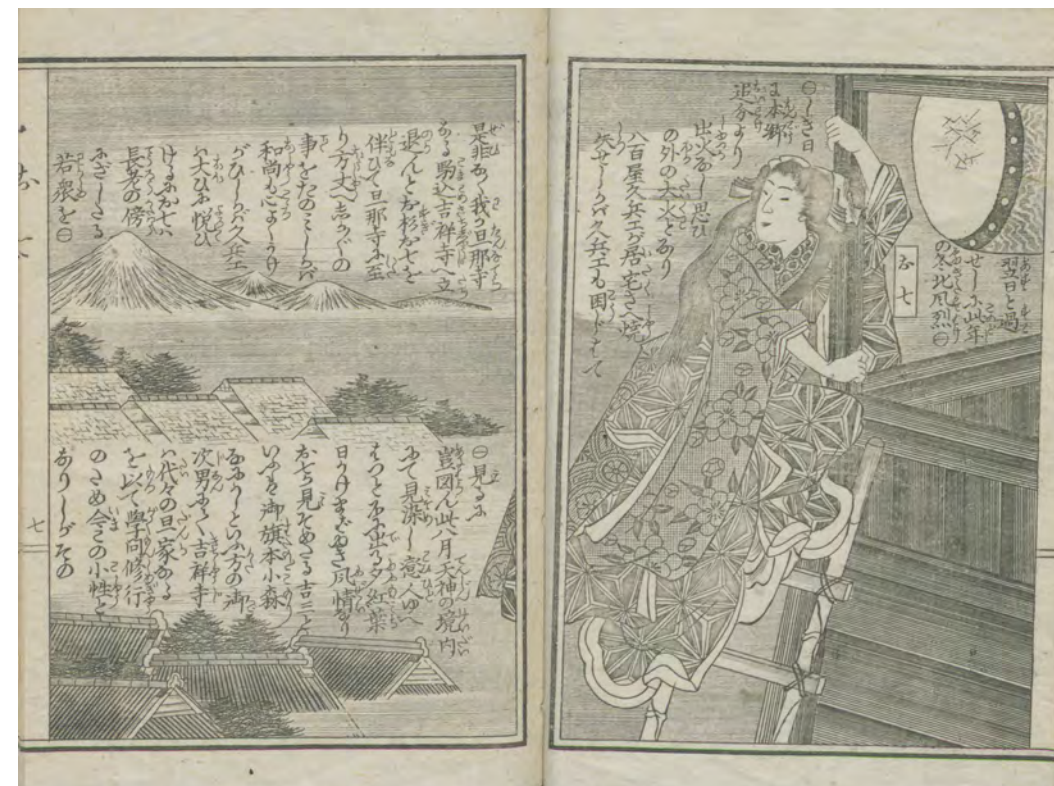 お七
翌日と過
せしに此年
の冬北風烈㊀
㊀しき日
又本郷
追分より
出火なし思ひ
の外の大火となり
八百屋久兵エが居宅さへ焼
失せしかバ久兵エも困じはてて
是非なく我が旦那寺
なる駒込吉祥寺へ立
退んとお杉お七を
伴ひて旦那寺に至
り方丈へしか〴〵の
事をたのミしかバ
和尚も心よくうけ
がひしかバ久兵エ
ハ大ひに悦び
けるにお七ハ
長老の傍
にざしたる
若衆を㊀
㊀見るに
豈図ん此八月天神の境内
にて見染し意人ゆへ
はつと斗に出る夕紅葉
日かげまばゆき風情なり
お七見そめたる吉三と
いふハ御旗本小森
なにがしといふ方の御
次男にて吉祥寺
ハ代々の旦家なる
を以て学問修行
のため今この小性と
なりしがその
七